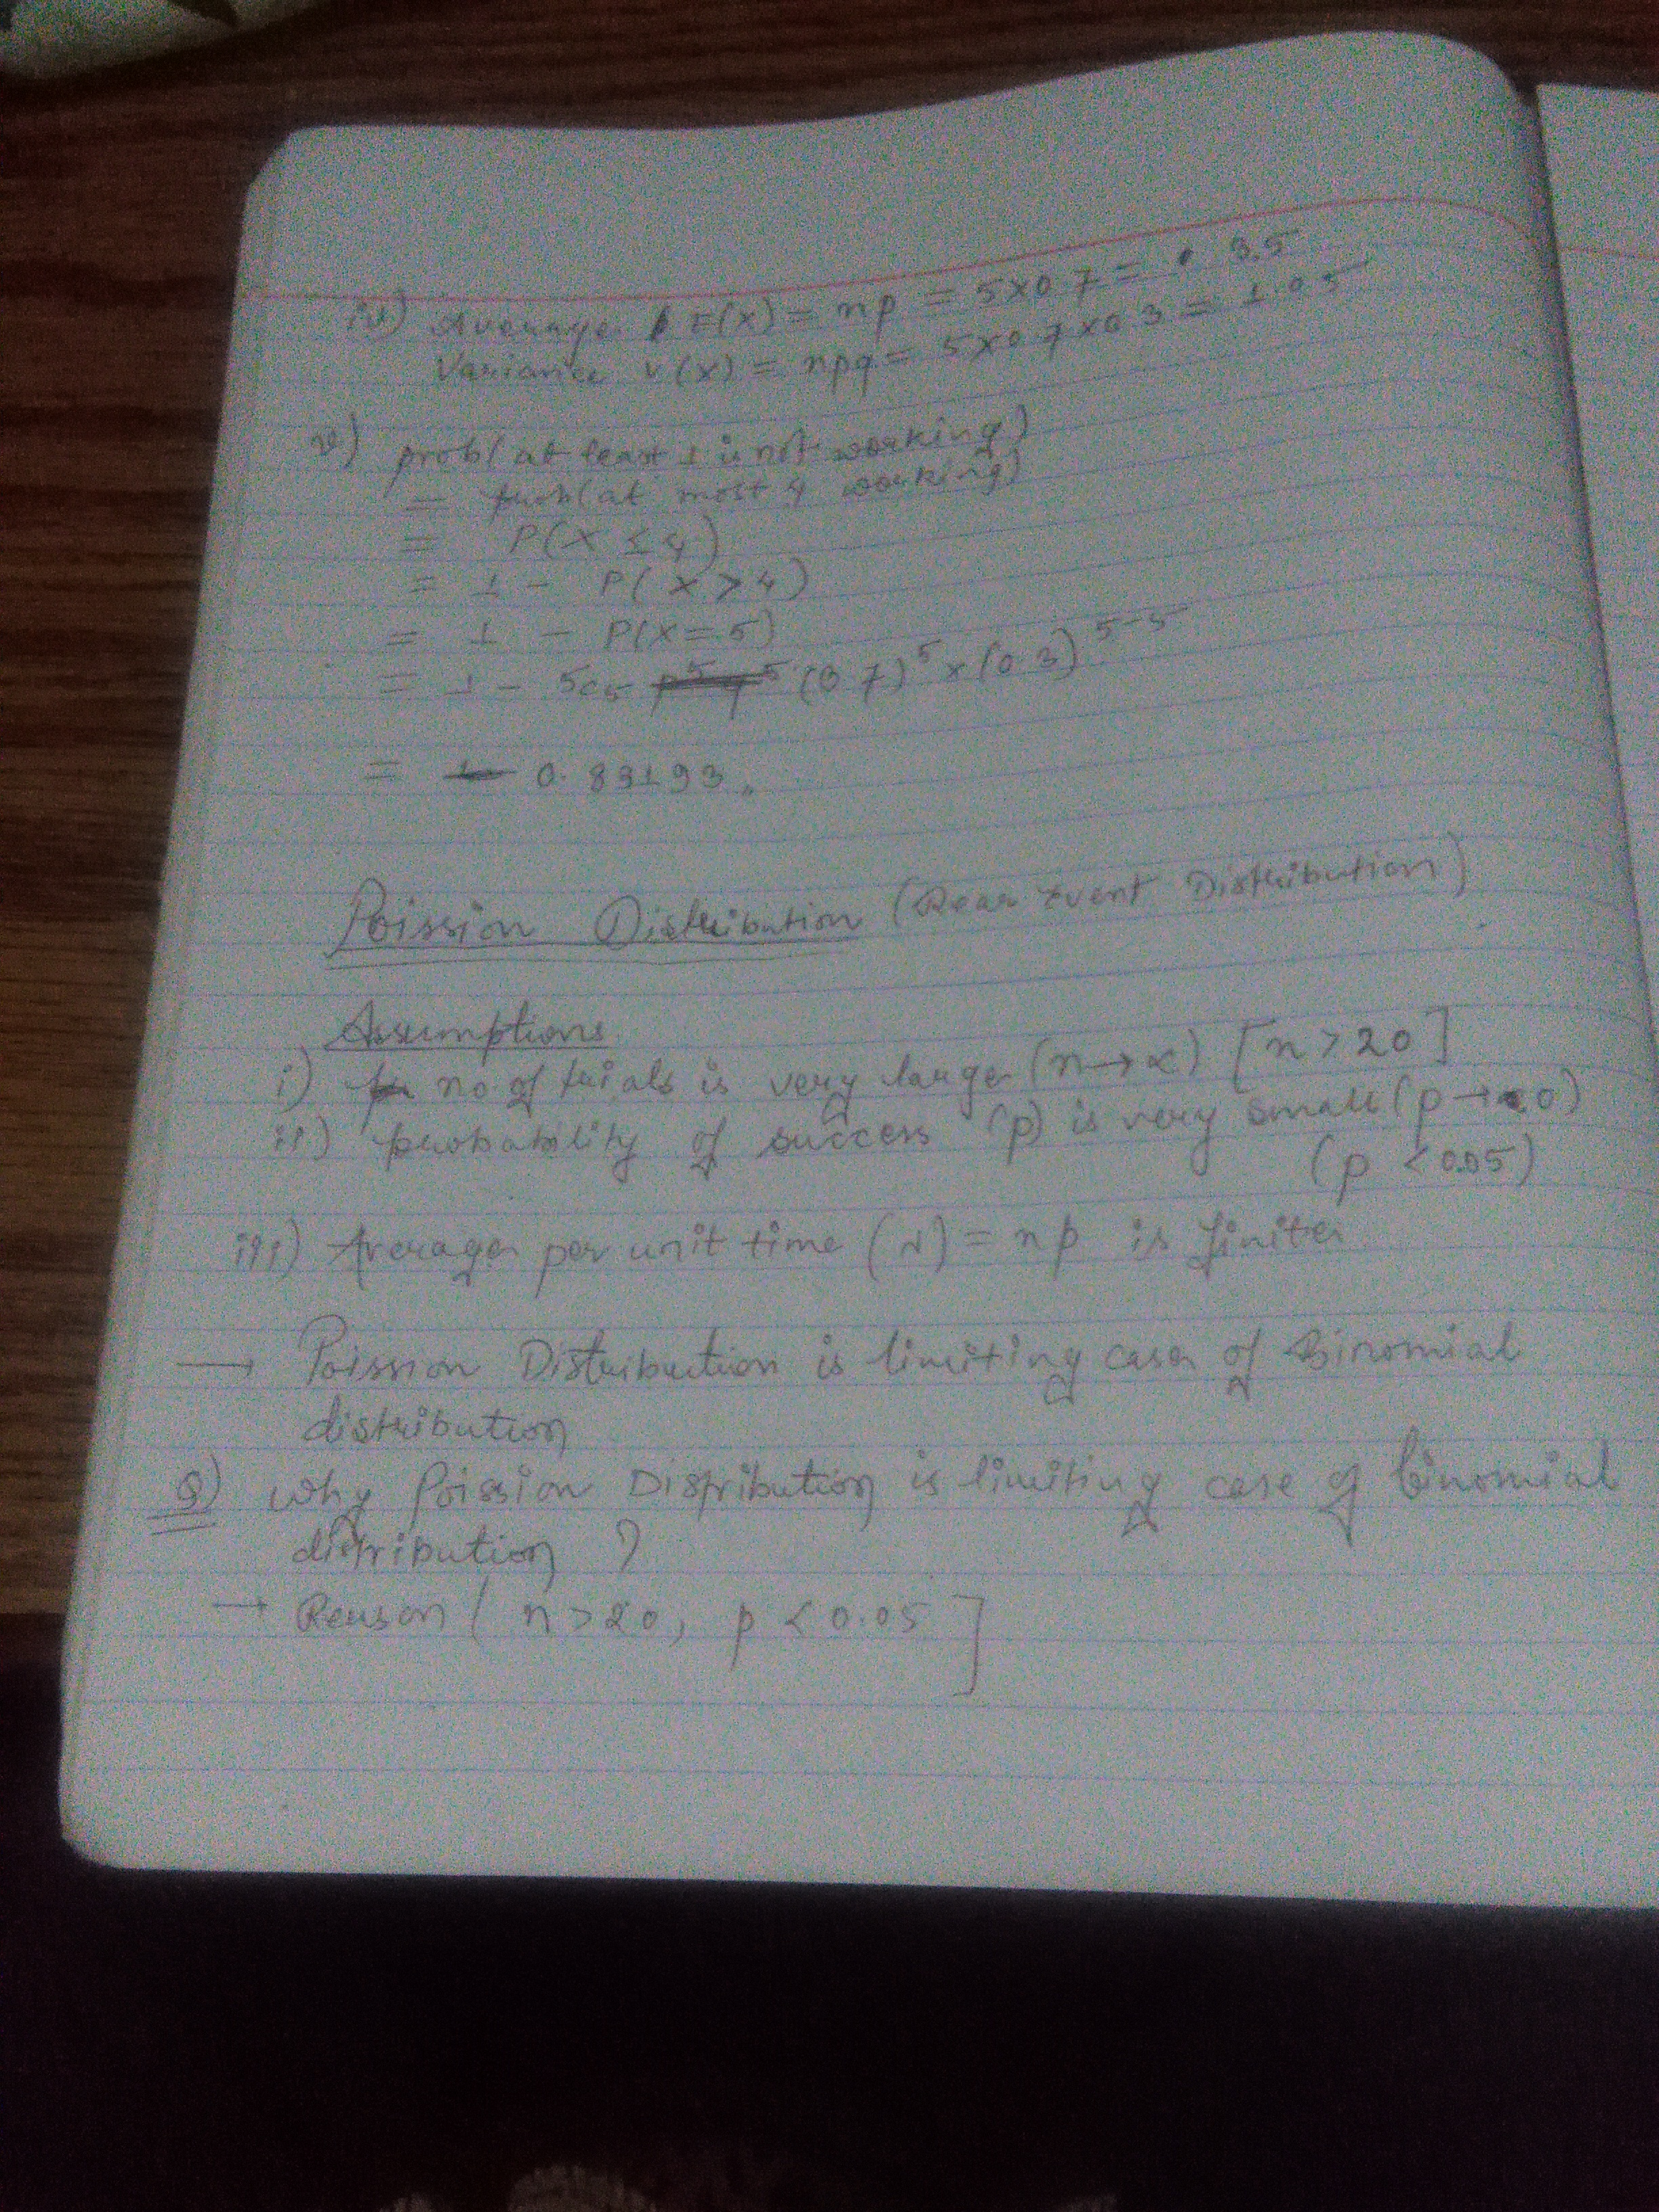 iv) Average E(x) = np = 5×0.7 = 3.5
Variance v(x) = npq = 5×0.7×0.3 = 1.05
v) prob(at least 1 is not working)
= prob(at most 4 working)
= P(X ≤ 4)
= 1 - P(X > 4)
= 1 - P(X = 5)
= 1 - 5c5 (0.7)^5 × (0.3)^5-5
= 0.83193
Poission Distribution (Rear Event Distribution)
Assumptions
i) no of trials is very large (n→∝) [n > 20]
ii) probability of success (p) is very small (p → 0)
(p < 0.05)
iii) Average per unit time (λ) = np is finite
→ Poission Distribution is limiting case of Binomial
distribution
Q) Why Poission Distribution is limiting case of binomial
distribution ?
→ Reason ( n > 20, p < 0.05 ]